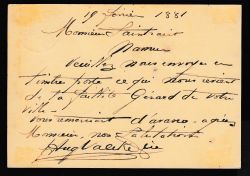 19 février 1881
Monsieur
Namur
Veuillez nous envoyer en
timbre poste ce qui nous revient
de la faillite Gérard de votre
ville.
vous remerciant d'avance, agréez
Monsieur, nos salutations